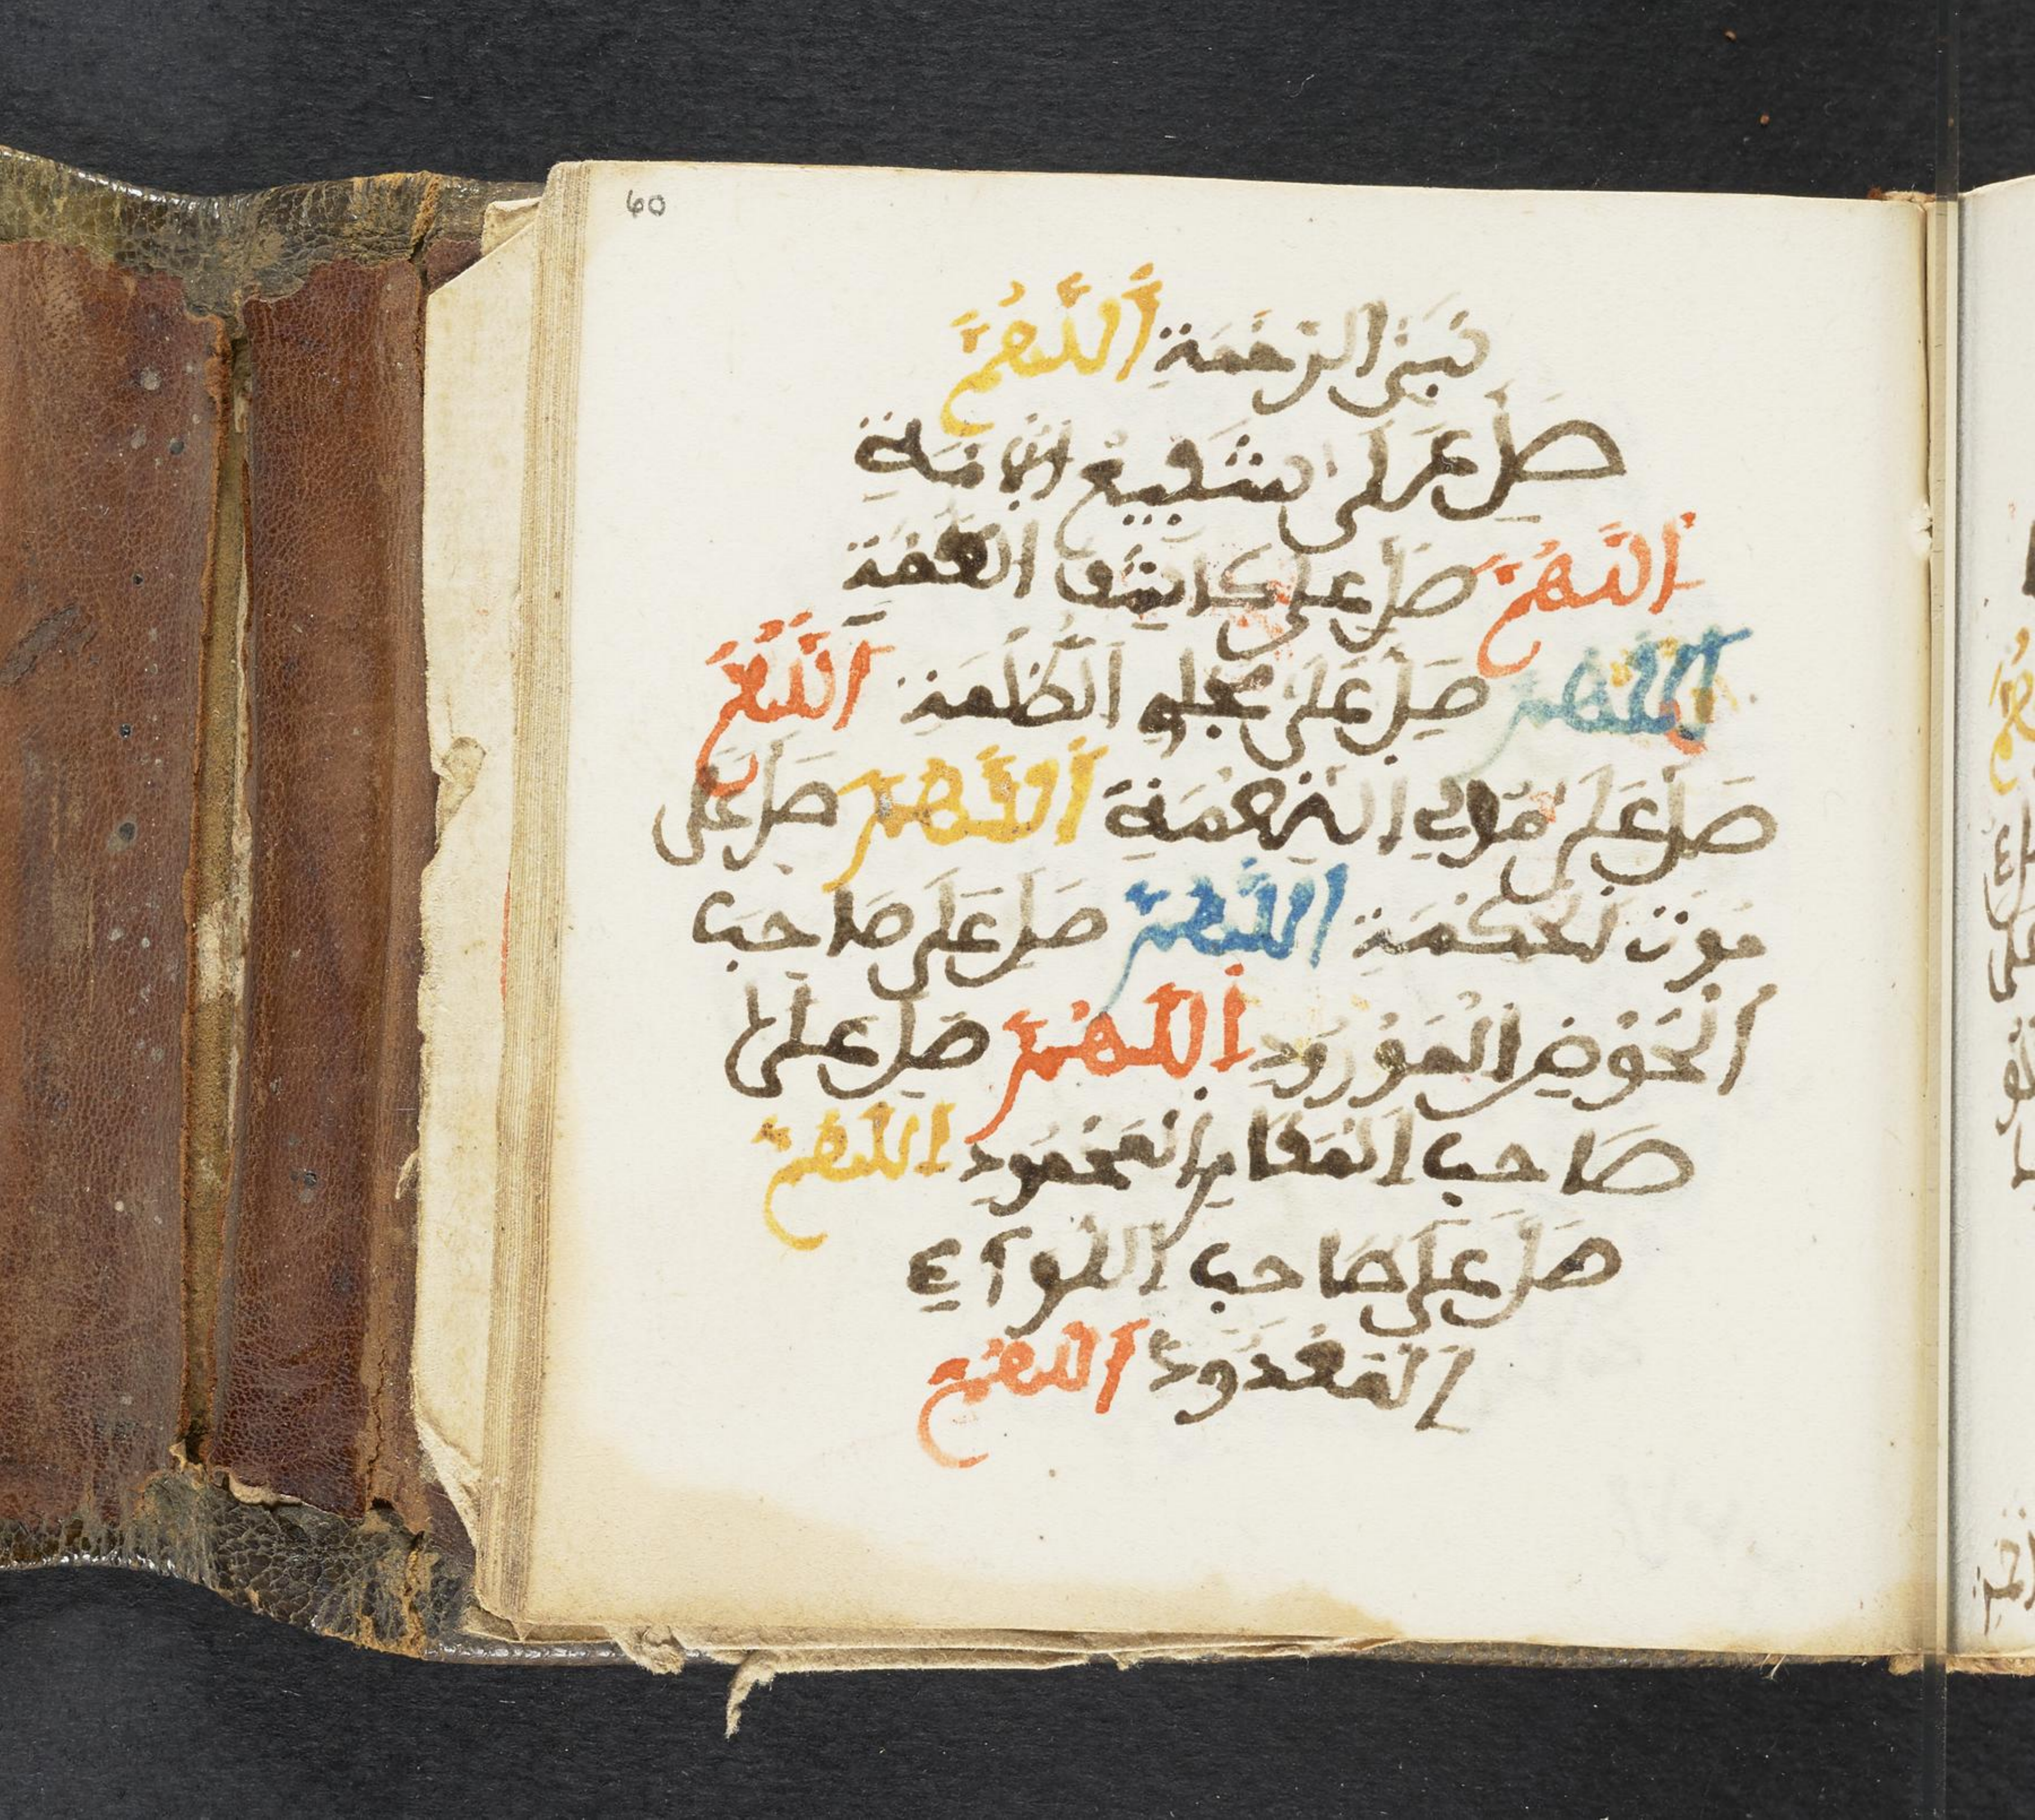 60
نَبِيِّ الرَّحْمَةِ أَللَّهُمَّ
صَلِّ عَلَى شَفِيعِ الْأُمَّةِ
أَللَّهُمَّ صَلِّ عَلَى كَاشِفِ الْغُمَّةِ
اللَّهُمَّ صَلِّ عَلَى مُجْلِي الظُّلْمَةِ اللَّهُمَّ
صَلِّ عَلَى مُوْلِي النِّعْمَةِ أَللَّهُمَّ صَلِّ عَلَى
الْحِكْمَةِ اللَّهُمَّ صَلِّ عَلَى صَاحِبِ
الْحَوْضِ الْمَوْرُودِ اللَّهُمَّ صَلِّ عَلَى
صَاحِبِ الْمَقَامِ الْمَحْمُودِ اللَّهُمَّ
صَلِّ عَلَى صَاحِبِ اللِّوَآءِ
الْمَعْدُودِ اللَّهُمَّ